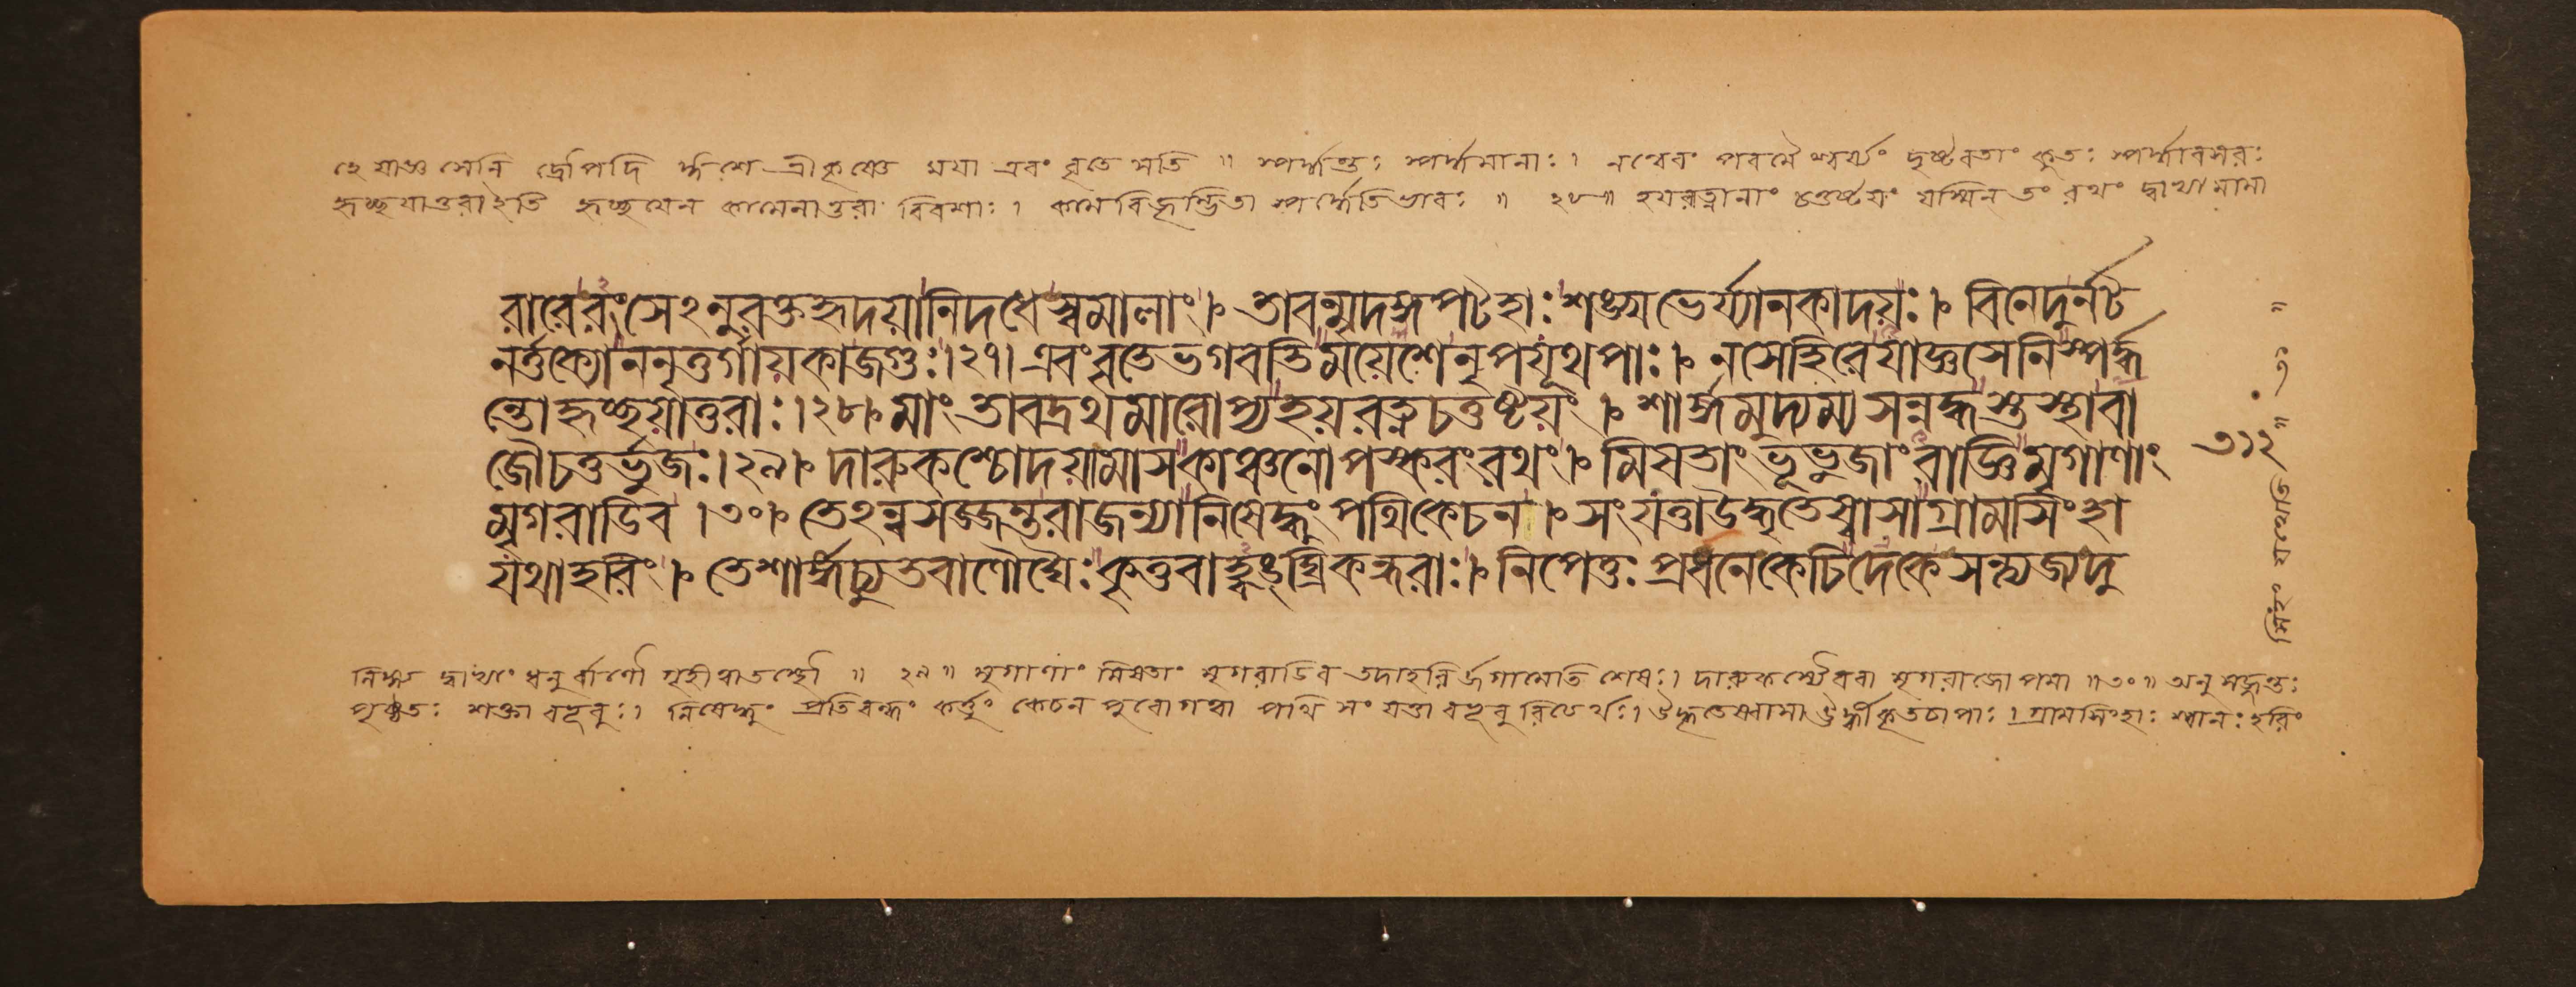 হে যাজ্ঞসেনি দ্রৌপদি ঈশে শ্রীকৃষ্ণে ময়া এবং বৃতে সতি ॥ স্পর্দ্ধন্তঃ স্পর্দ্ধমানাঃ। নন্বেবং পরমৈশ্বর্য্যং দৃষ্টবতাং কুতঃ স্পর্দ্ধাবসরঃ
হৃচ্ছয়াতুরা ইতি হৃচ্ছয়েন কামেনাতুরা বিবশাঃ। কামবিজৃম্ভিতা স্পর্দ্ধেতিভাবঃ ॥ ২৮ ॥ হয়রত্নানাং চতুষ্টয়ং যস্মিন্ তং রথং দ্বাভ্যামামা
রারেরংসেঽনুরক্তহৃদয়ানিদধেস্বমালাং।৮ তাবন্মৃদঙ্গপটহাঃশঙ্খভের্য্যানকাদয়ঃ।৮ বিনেদুর্নট
নর্ত্তক্যোননৃতুর্গায়কাজগুঃ।২৭। এবংবৃতেভগবতিময়েশেনৃপযূথপাঃ।৮ নসেহিরেযাজ্ঞসেনিস্পর্দ্ধ
ন্তোহৃচ্ছয়াতুরাঃ।২৮।৮ মাংতাবদ্রথমারোপ্যহয়রত্নচতুষ্টয়ং।৮ শার্ঙ্গমুদ্যম্যসন্নদ্ধস্তস্থাবা
জৌচতুর্ভুজঃ।২৯।৮ দারুকশ্চোদয়ামাসকাঞ্চনোপস্করংরথং।৮ মিষতাংভূভুজাংরাজ্ঞিমৃগাণাং
মৃগরাডিব।৩০।৮ তেঽন্বসজ্জন্তরাজন্যানিষেদ্ধুংপথিকেচন।৮ সংযত্তাউদ্ধৃতেষ্বাসাগ্রামসিংহা
যথাহরিং।৮ তেশার্ঙ্গচ্যুতবাণৌঘৈঃকৃত্তবাহ্বঙ্ঘ্রিকন্ধরাঃ।৮ নিপেতুঃপ্রধনেকেচিদেকেসন্ত্যজ্যদু
৩১২
সিংহং যথেতি ॥ ৩১ ॥
দ্বাভ্যাং ধনুর্বাণৌ গৃহীত্বাতস্থৌ ॥ ২৯ ॥ মৃগাণাং মিষতাং মৃগরাডিব তদাহরির্জগামেতি শেষঃ। মৃগরাজোপমা ॥৩০॥ অনুসজ্জন্তঃ
পৃষ্ঠতঃ শক্তা বভূবুঃ। নিষেদ্ধুং প্রতিবন্ধং কর্ত্তুং কেচন পুরোগত্বা পথি সংযত্তা বভূবুরিত্যর্থঃ। উদ্ধৃতেষ্বাসা ঊর্দ্ধীকৃতচাপাঃ। গ্রামসিংহাঃ শ্বানঃ হরিং